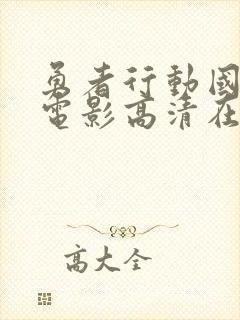 勇者行動國
電影高清在
高大全